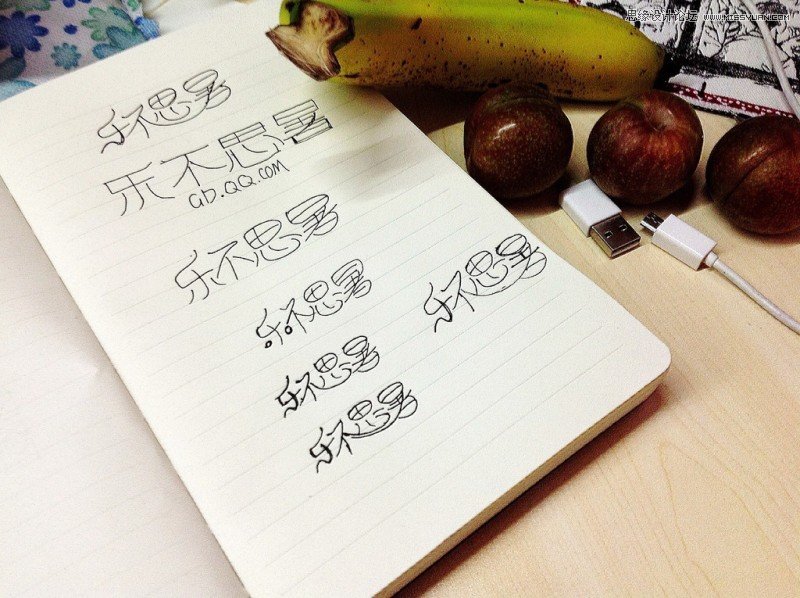 思缘设计论坛 WWW.MISSYUAN.COM
乐不思暑
乐不思暑
ab.QQ.com
乐不思暑
乐不思暑
乐不思暑
乐不思暑
乐不思暑